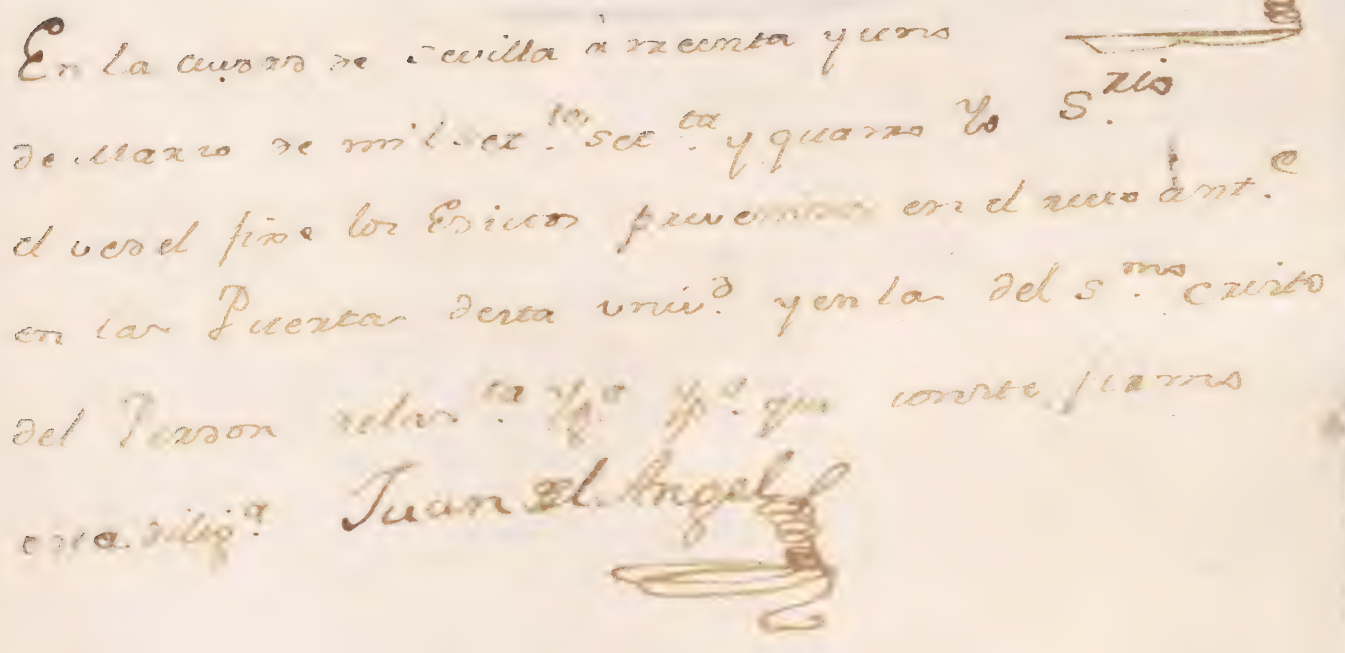 En la ciudad de Sevilla à treinta y uno
de Marzo de mil set.tos set.ta y quatro Yo S.rio
el vedel fixe los Edictos prevenidos en el auto ànt.e
en la Puerta desta Univ.d y en la del S.mo Cristo
del Perdon y p.a que conste firmo
esta dilig.a Juan del Angel